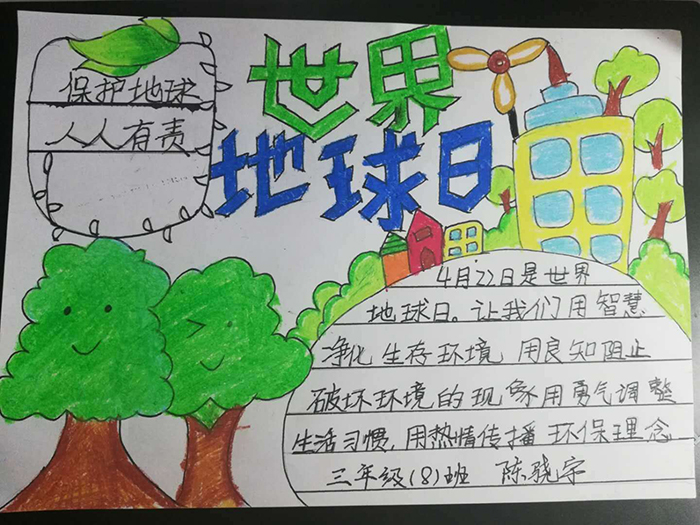 世界
地球日
保护地球
人人有责
4月22日是世界
地球日。让我们用智慧
净化生存环境 用良知阻止
破坏环境的现象用勇气调整
生活习惯,用热情传播环保理念
三年级(8)班 陈骁宇